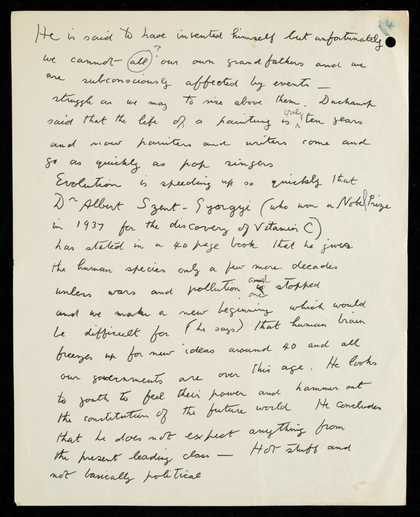 4
He is said to have invented himself but unfortunately
?
we cannot all our own grandfathers and we
are subconsciously affected by events —
struggle as we may to rise above them. Duchamp
only
said that the life of a painting is ten years
and now painters and writers come and
go as quickly as pop singers
Evolution is speeding up so quickly that
Dr Albert Szent-Gyorgyi (who won a Nobel Prize
in 1937 for the discovery of Vitamin C)
has stated in a 40 page book that he gives
the human species only a few more decades
unless wars and pollution is stopped
and we make a new beginning which would
be difficult for (he says) that human brain
freezes up for new ideas around 40 and all
our governments are over this age. He looks
to youth to feel their power and hammer out
the constitution of the future world He concludes
that he does not expect anything from
the present leading class — Hot stuff and
not basically political